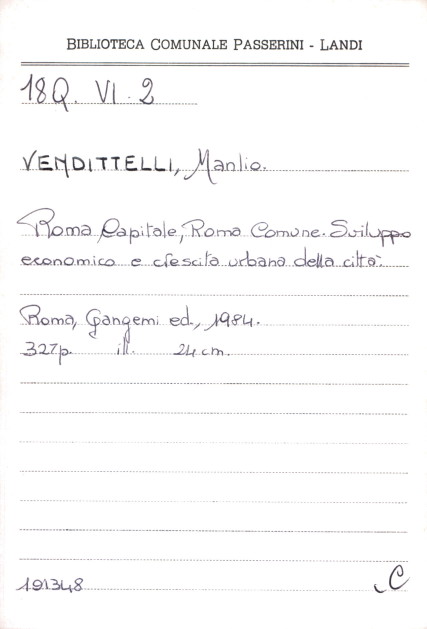 BIBLIOTECA COMUNALE PASSERINI - LANDI
18Q. VI. 2
VENDITTELLI, Manlio.
Roma Capitale, Roma Comune. Sviluppo
economico e crescita urbana della città.
Roma, Gangemi ed., 1984.
327p. ill. 24 cm.
191348 C